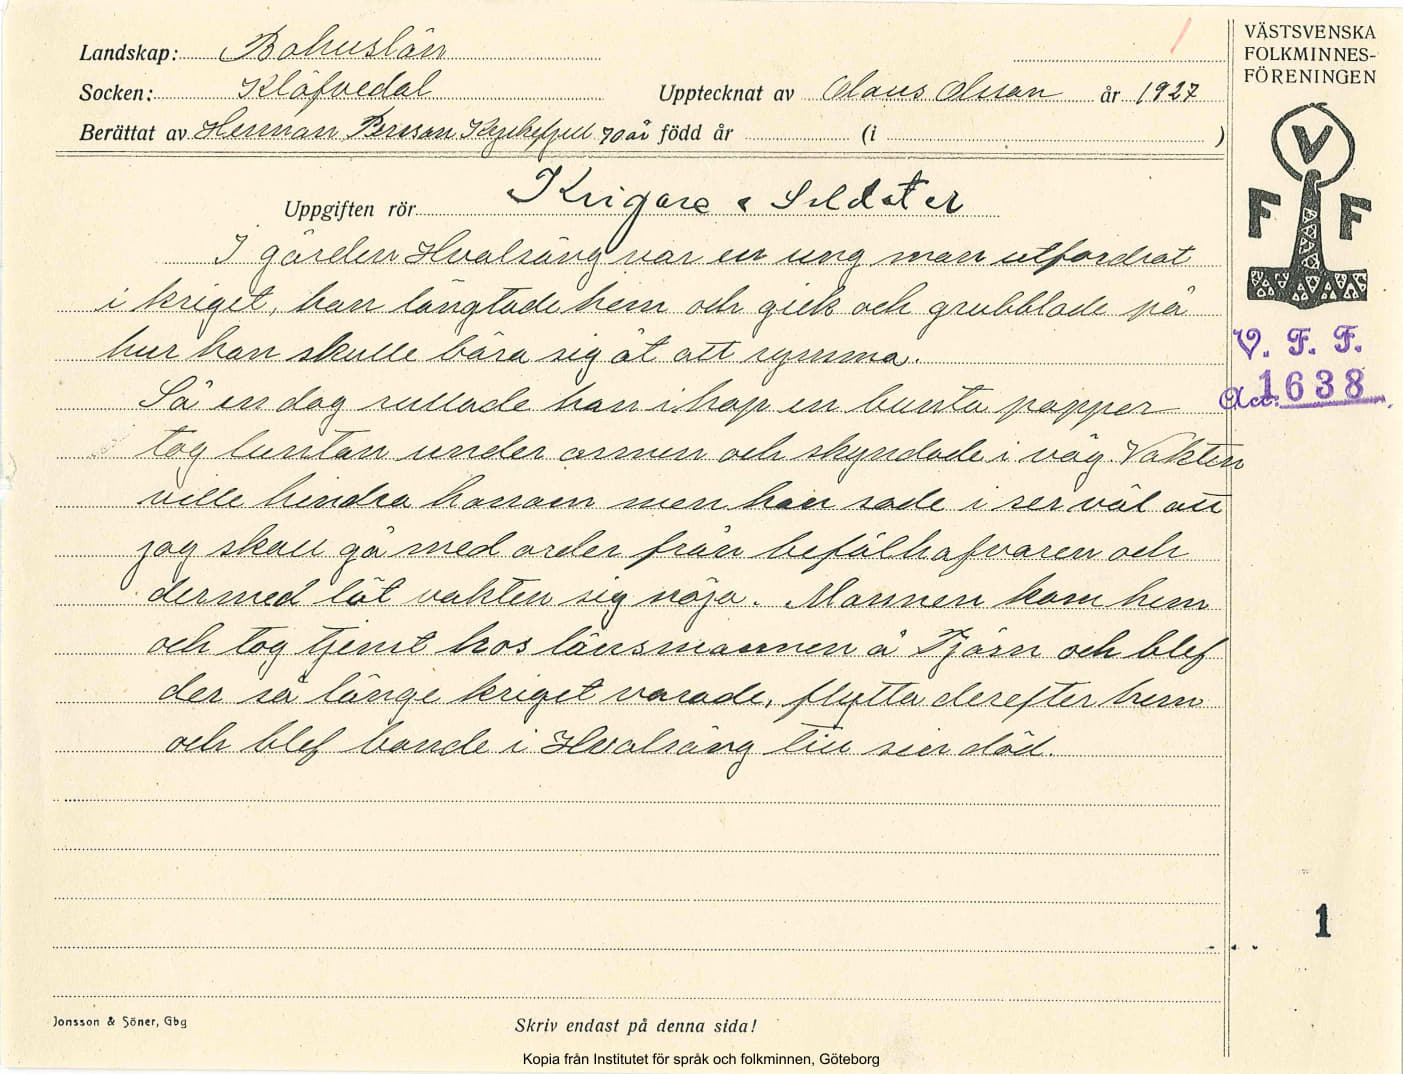 Landskap: Bohuslän
Socken: Klöfvedal
Upptecknat av Olaus Olsson år 1927
Berättat av Herman Persson 70 år född år (i )
Uppgiften rör Krigare & Soldater
I gården Hvalsäng var en ung man utfordrat
i kriget, han längtade hem och gick och grubblade på
hur han skulle bära sig åt att rymma.
Så en dag rullade han ihop en bunta papper
tog buntan under armen och skyndade i väg Vakten
ville hindra honom men han sade i ser väl att
jag skall gå med order från befälhafvaren och
dermed lät vakten sig nöja. Mannen kom hem
och tog tjenst hos länsmannen å Tjörn och blef
der så länge kriget varade, flytta derefter hem
och blef bonde i Hvalsäng till sin död.
VÄSTSVENSKA
FOLKMINNES-
FÖRENINGEN
V
F F
V. F. F.
Acc. 1638
1
Jonsson & Söner, Gbg
Skriv endast på denna sida!
Kopia från Institutet för språk och folkminnen, Göteborg